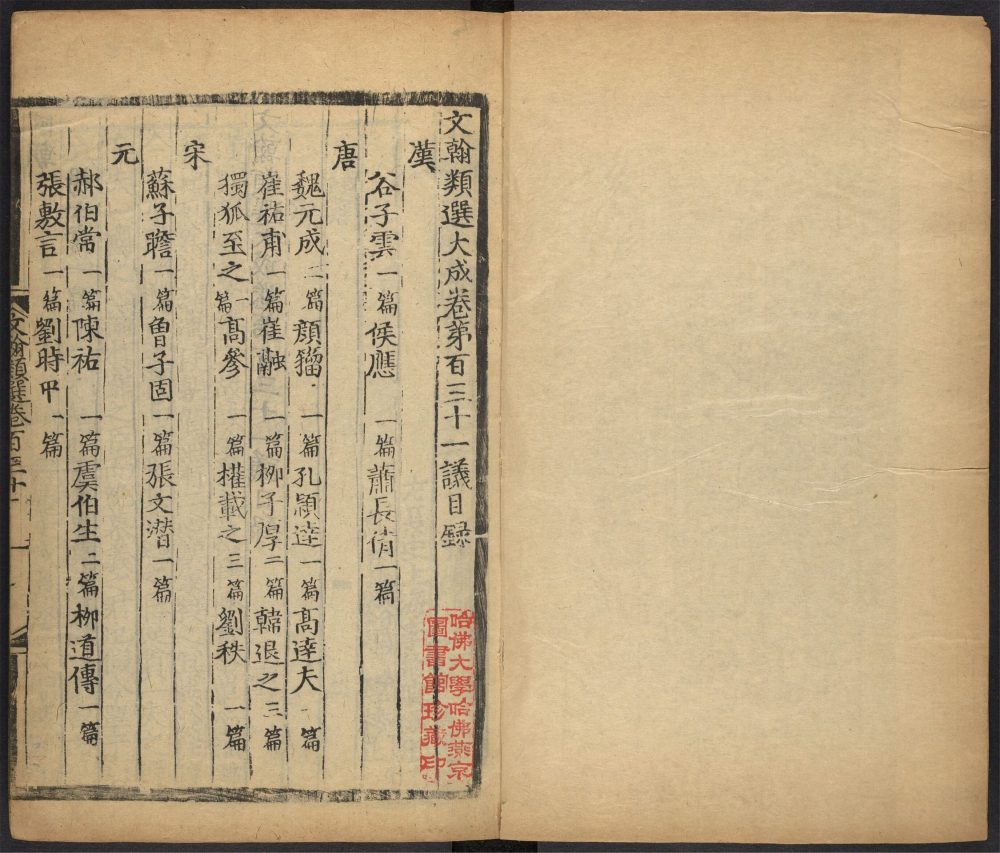 文翰類選大成卷第百三十一議目録
漢
谷子雲一篇侯應一篇蕭長倩一篇
唐
魏元成二篇顔籀一篇孔頴達一篇髙達夫一篇
崔祐甫一篇崔融一篇栁子厚二篇韓退之三篇
獨狐至之一篇髙參一篇權載之三篇劉秩一篇
宋
蘇子瞻一篇曾子固一篇張文潜一篇
元
郝伯常一篇陳祐一篇虞伯生二篇栁道傳一篇
張敷言一篇劉時中一篇
文翰類選卷百三十一
一
哈佛大學哈佛燕京
圖書館珍藏印